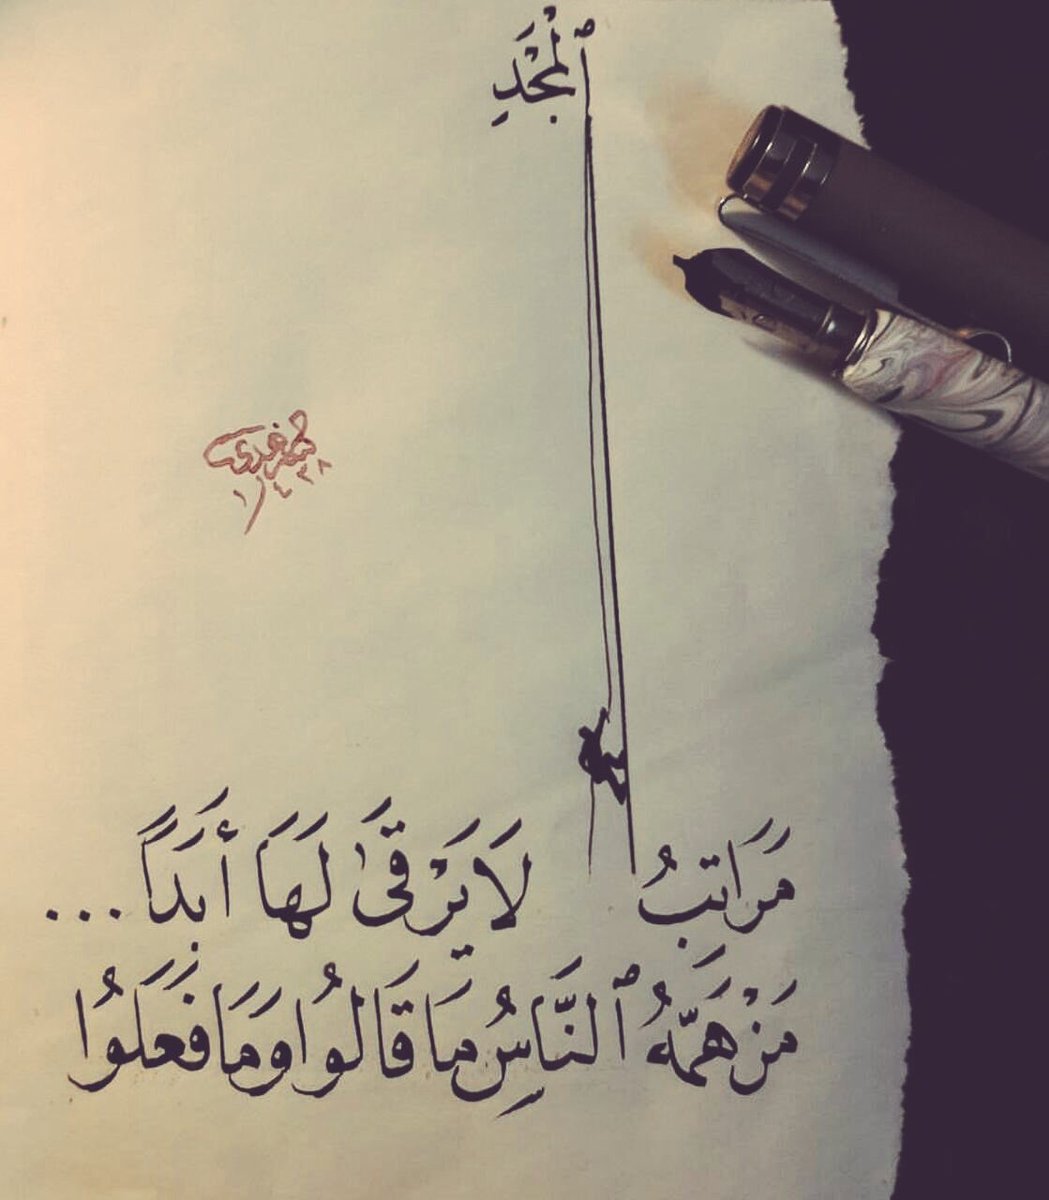 ٱلْمَجْدِ
١٤٣٨
مَرَاتِبُ لَا يَرْقَىٰ لَهَا أَبَدَاً ...
مَنْ هَمُّهُ ٱلنَّاسُ مَا قَالُوا وَمَا فَعَلُوا